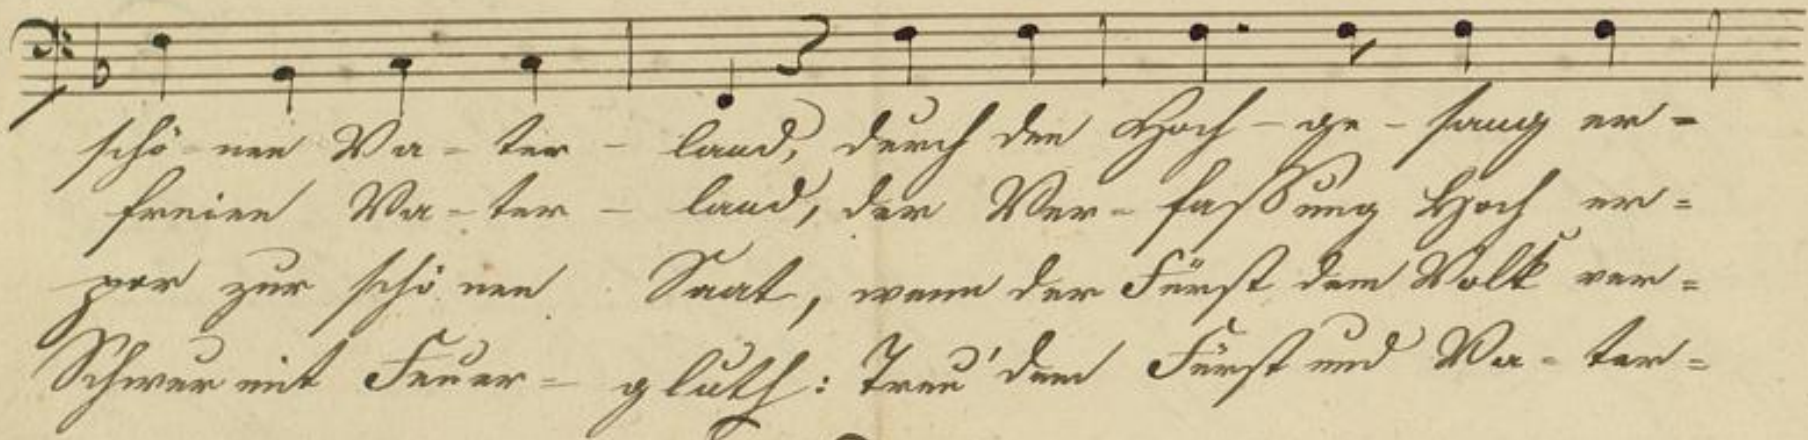 schö-nen Va-ter-land, durch den Hoch-ge-sang er-
freien Va-ter-land, der Ver-faßung Hoch er-
por zur schönen Saat, wenn der Fürst dem Volk ver-
Schwur mit Feuer-gluth: Treu' dem Fürst und Va-ter-